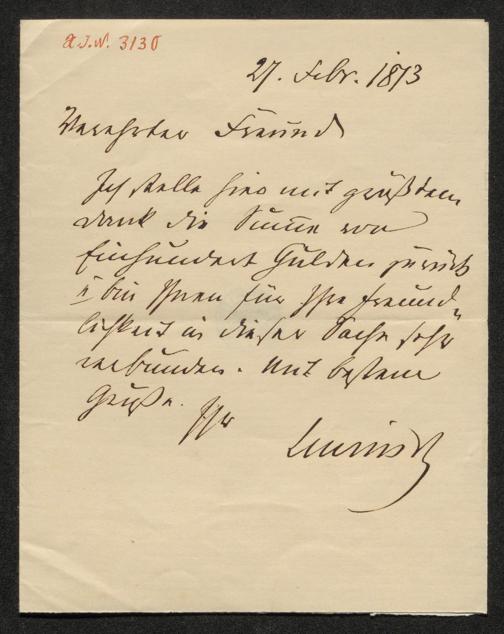 a.J.N. 3130
27. Febr. 1873
Verehrter Freund
Ich stelle hier mit größtem
Dank die Summe von
Einhundert Gulden zurück
u bin Ihnen für Ihre Freund-
lichkeit in dieser Sache sehr
verbunden. Mit bestem
Gruße.
Ihr
Lewinsky